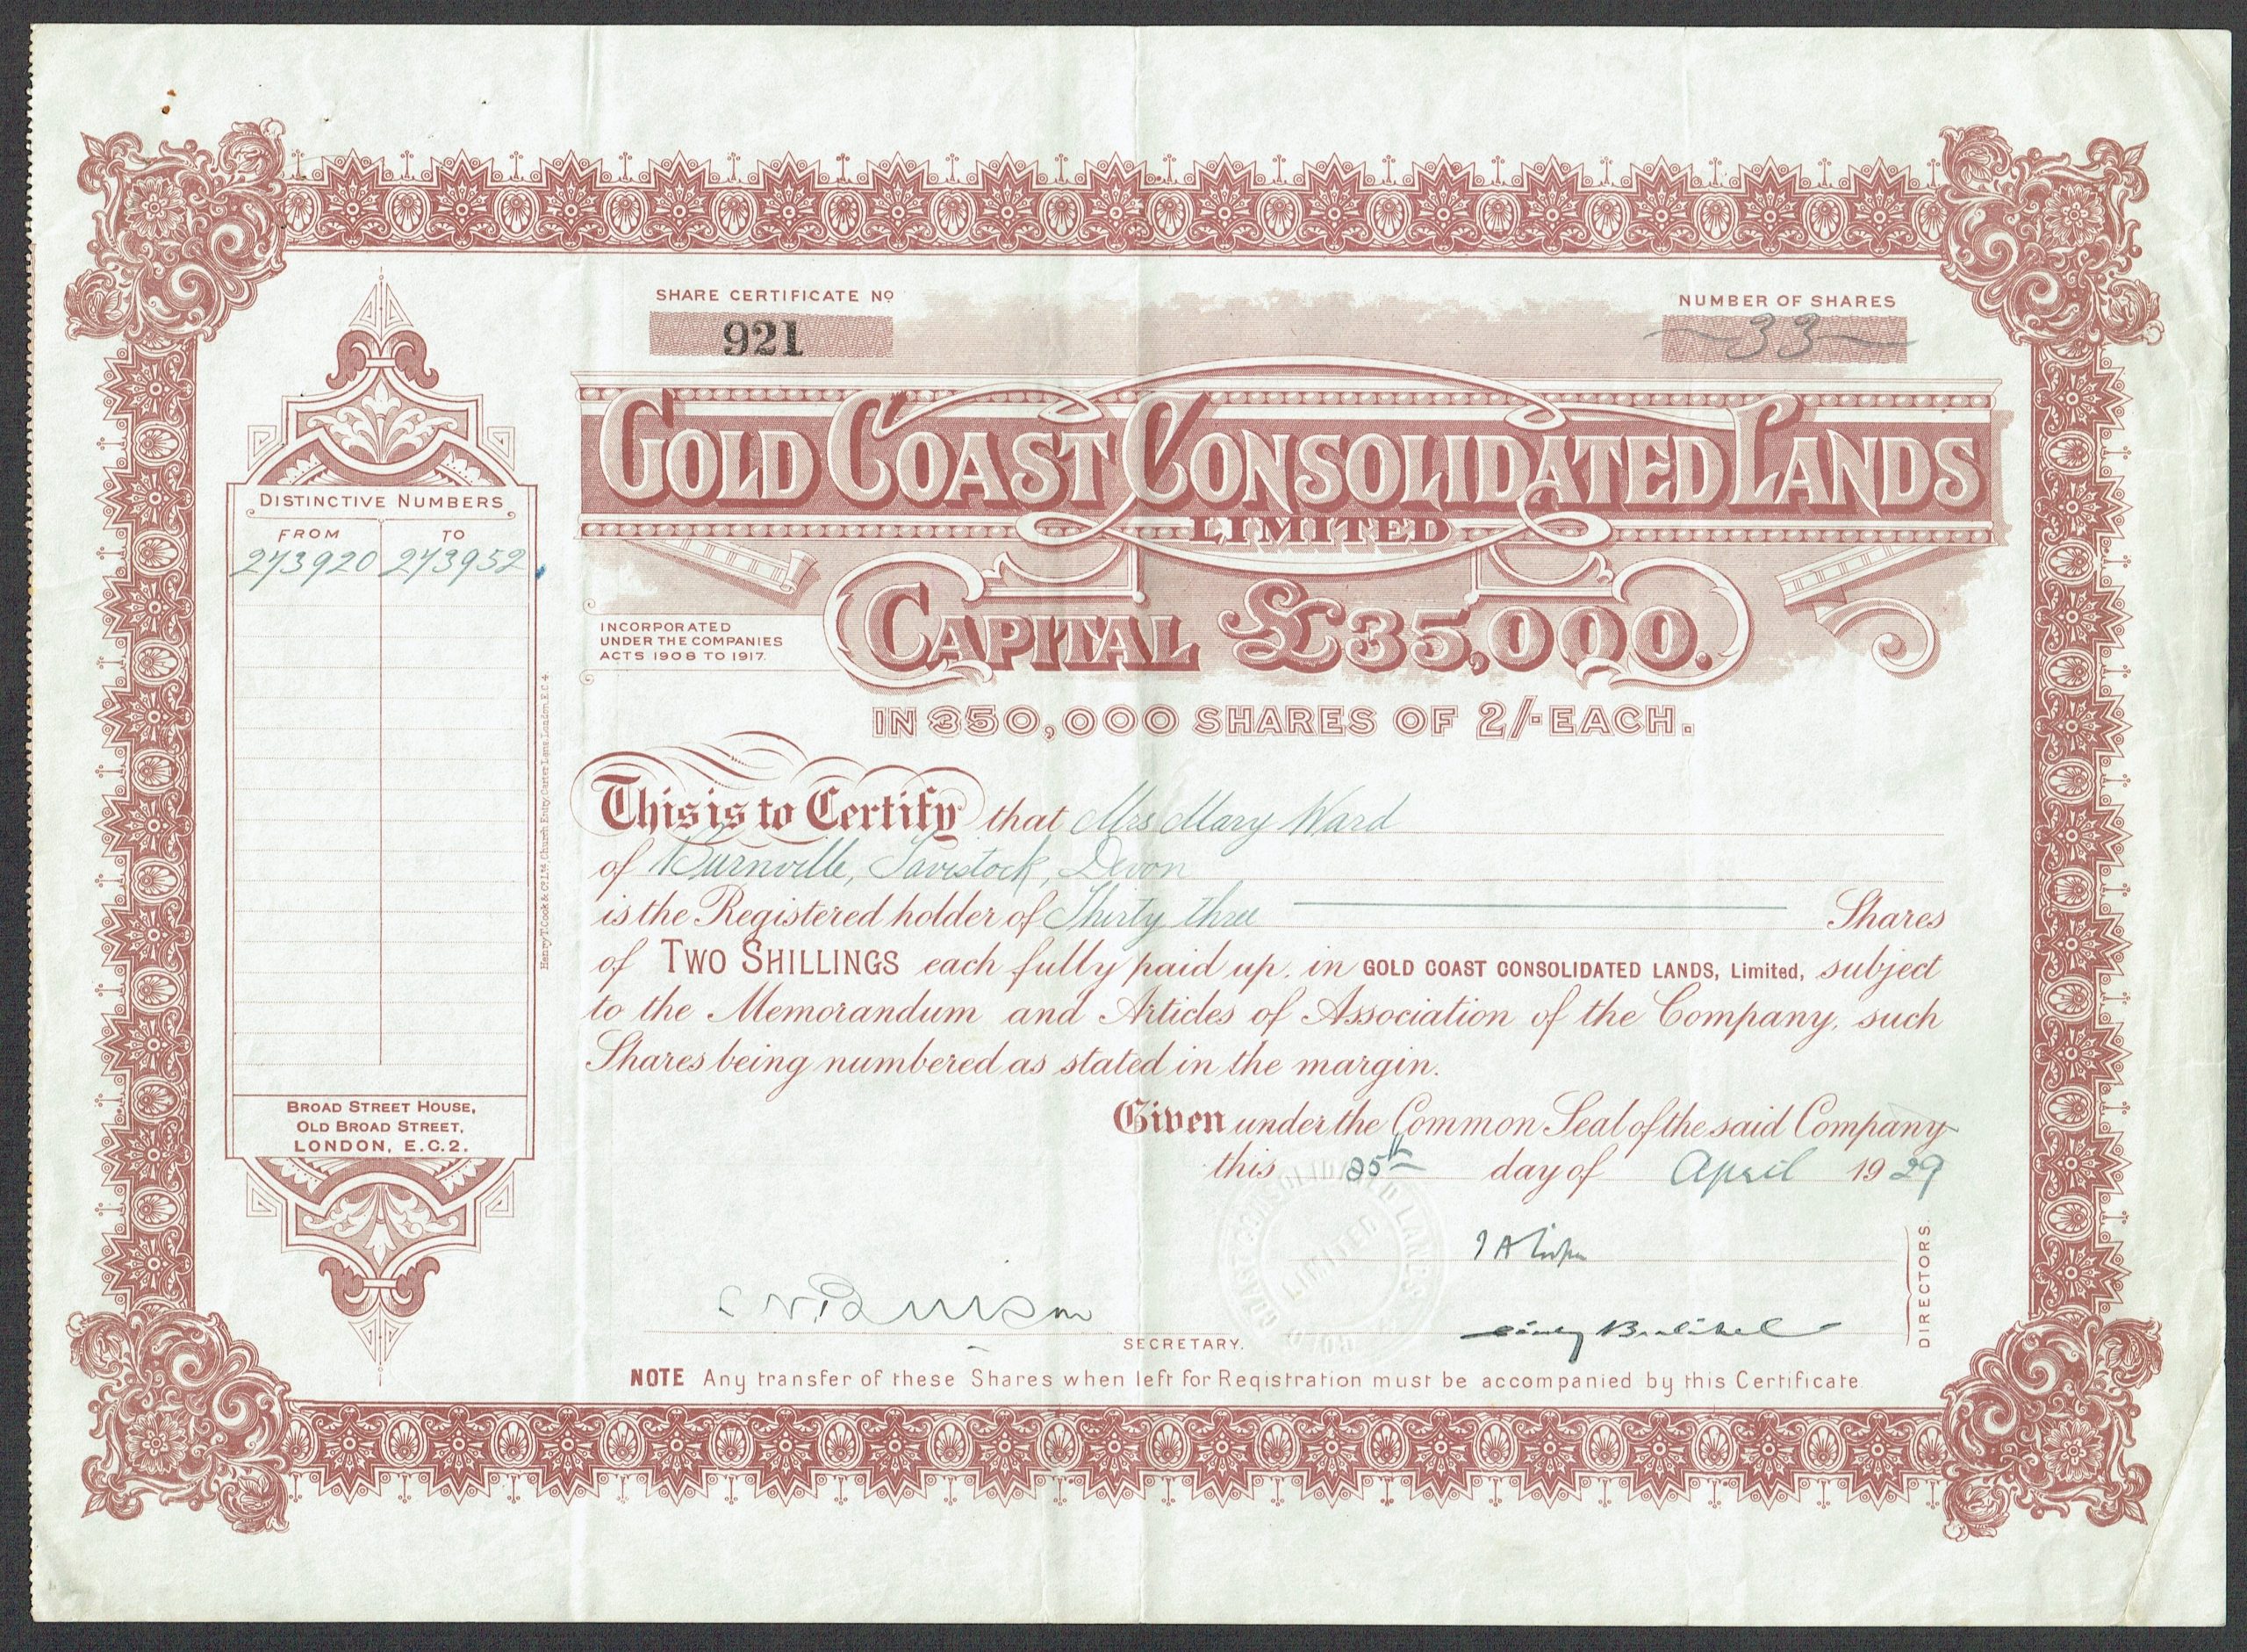 SHARE CERTIFICATE No
921
NUMBER OF SHARES
33
GOLD COAST CONSOLIDATED LANDS
LIMITED
CAPITAL £35,000.
IN 350,000 SHARES OF 2/- EACH.
INCORPORATED
UNDER THE COMPANIES
ACTS 1908 TO 1917.
DISTINCTIVE NUMBERS
FROM TO
243920 243952
Henry T. Cook & Co. Ltd. Church Entry, Carter Lane, London, E.C.4.
BROAD STREET HOUSE,
OLD BROAD STREET,
LONDON, E.C.2.
This is to Certify that Mrs Mary Ward
of Burnville, Tavistock, Devon
is the Registered holder of Thirty three Shares
of TWO SHILLINGS each fully paid up, in GOLD COAST CONSOLIDATED LANDS, Limited, subject
to the Memorandum and Articles of Association of the Company, such
Shares being numbered as stated in the margin.
Given under the Common Seal of the said Company
this 25th day of April 1929
GOLD COAST CONSOLIDATED LANDS
LIMITED
DIRECTORS.
SECRETARY.
NOTE Any transfer of these Shares when left for Registration must be accompanied by this Certificate.